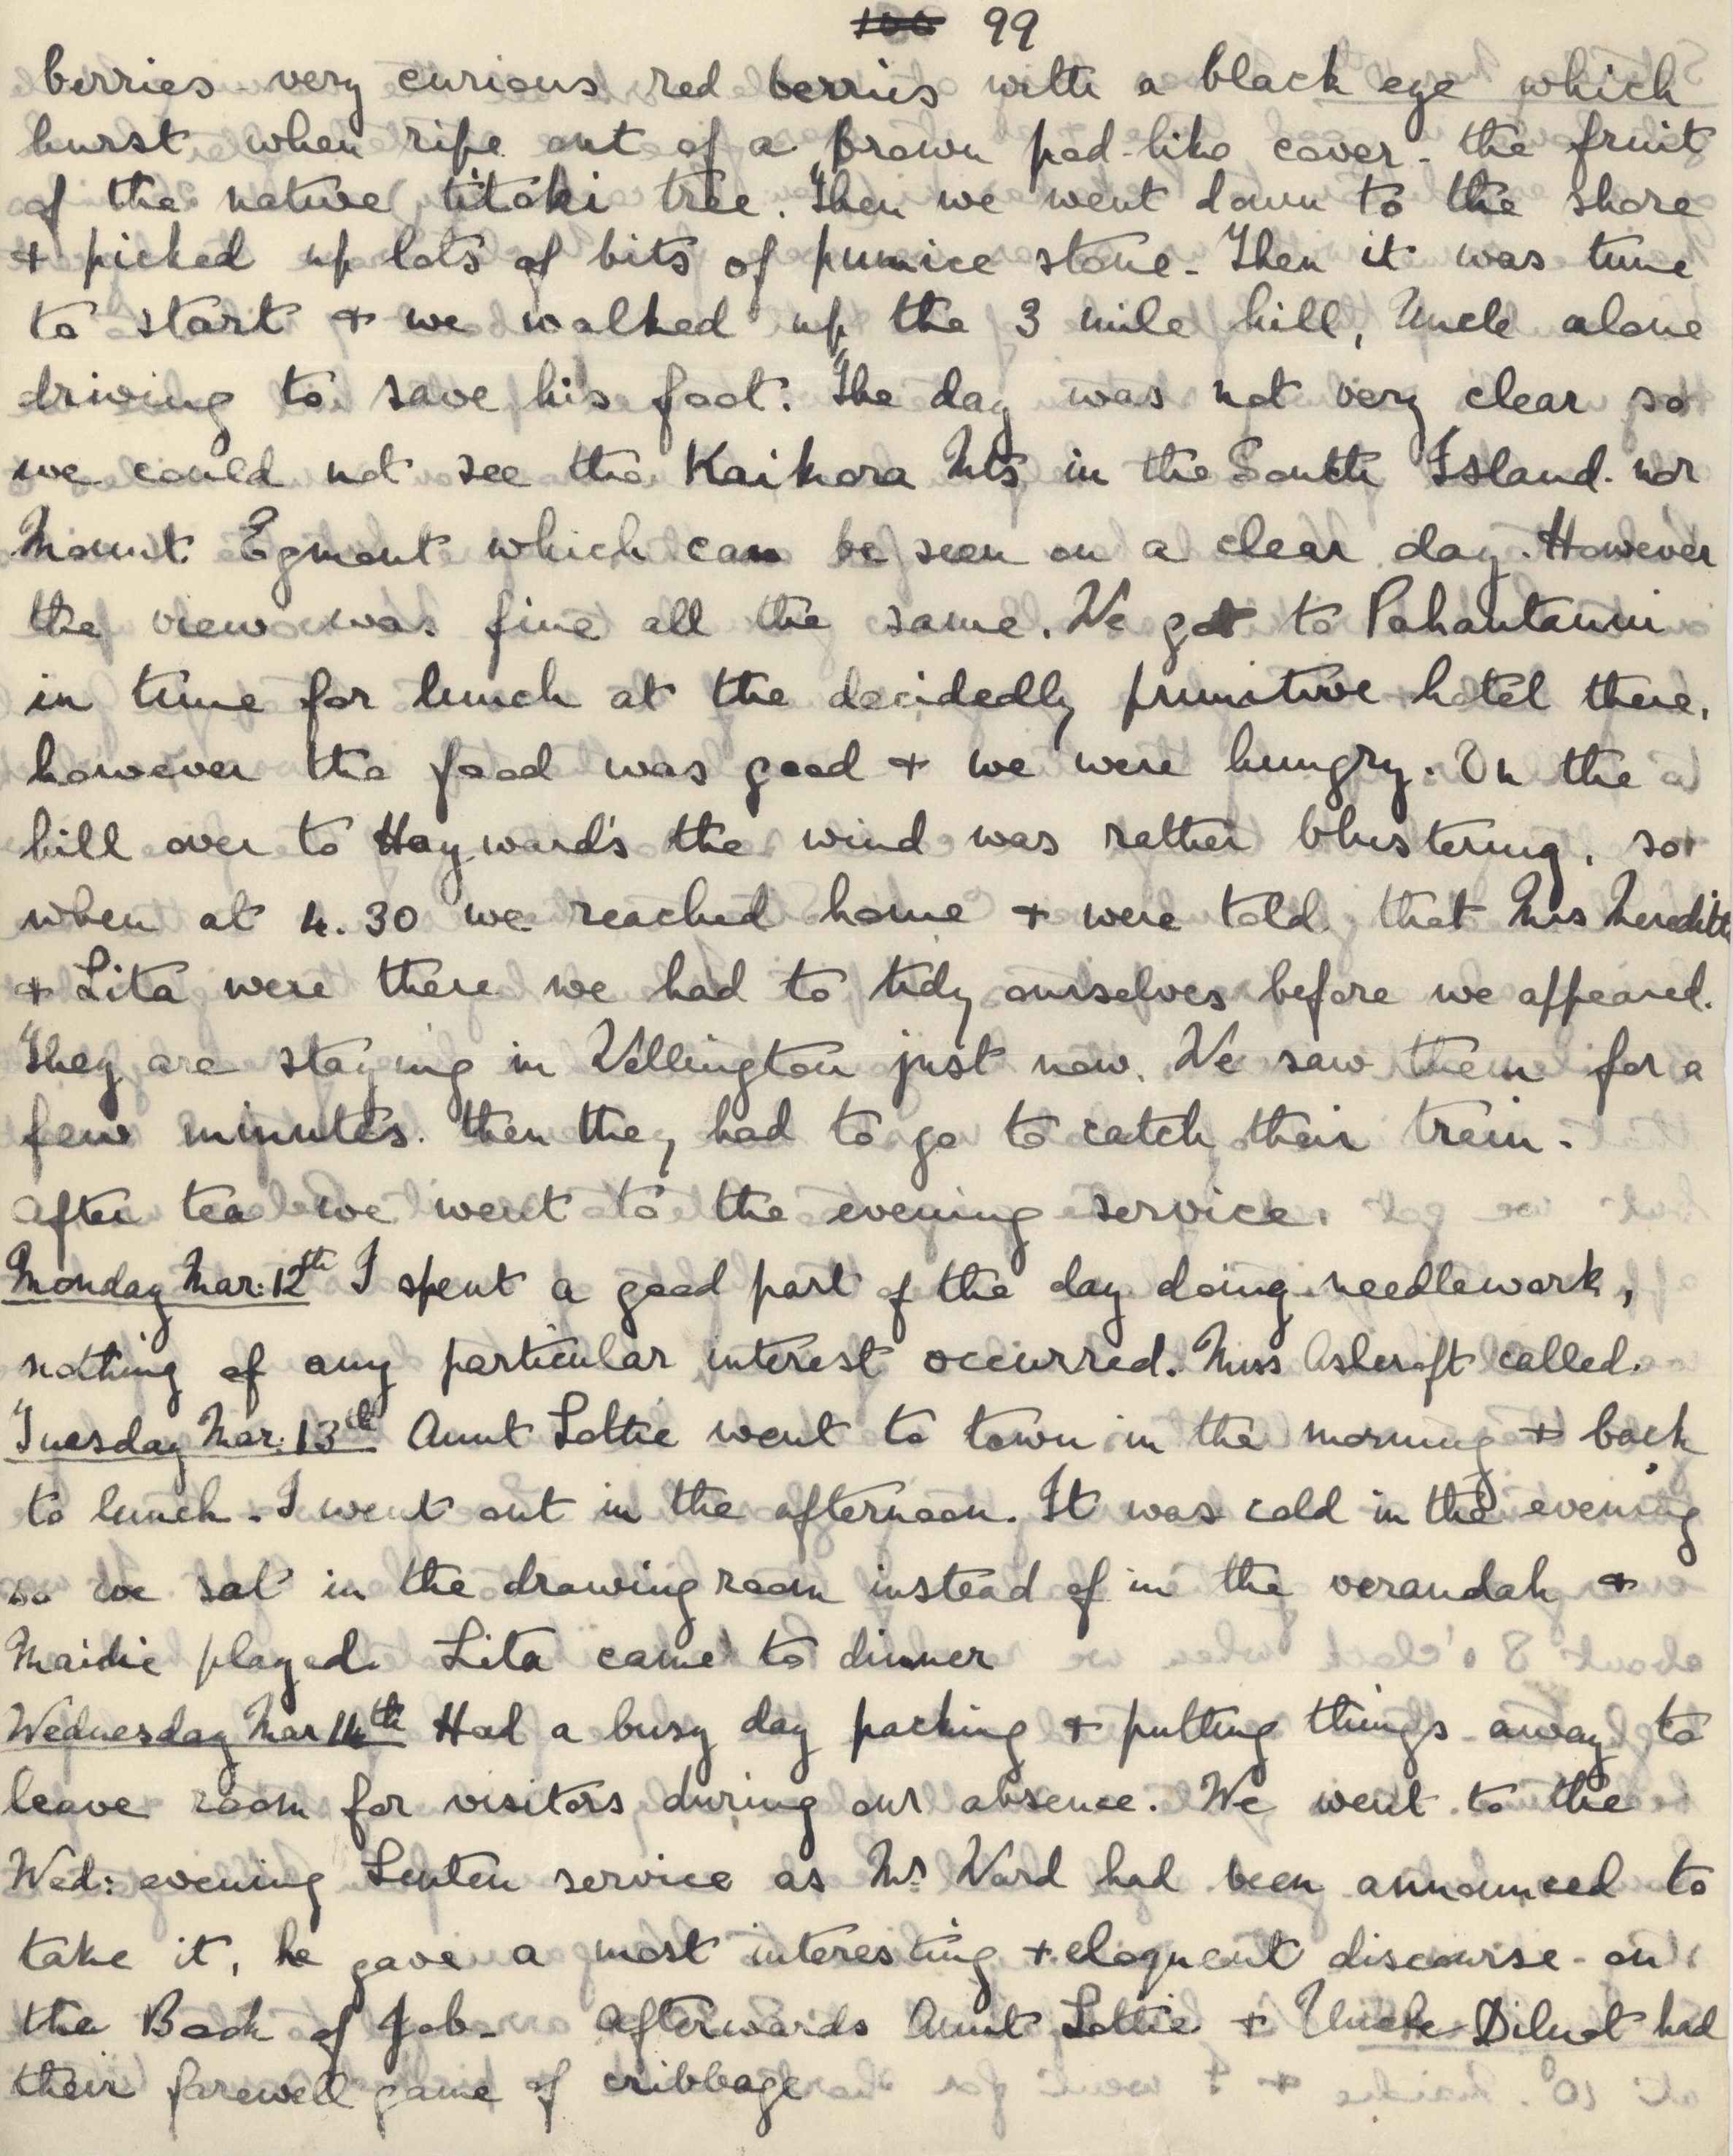 100 99
berries - very curious red berries with a black eye which
burst when ripe out of a brown pod-like cover - the fruit
of the native titoki tree. Then we went down to the shore
+ picked up lots of bits of pumice stone - Then it was time
to start + we walked up the 3 mile hill, Uncle alone
driving to save his foot. The day was not very clear so
we could not see the Kaikora Mts in the South Island. nor
Mount Egmont which can be seen on a clear day. However
the view was fine all the same. We got to Pahautanui
in time for lunch at the decidedly primitive hotel there,
however the food was good + we were hungry. On the
hill over to Hayward's the wind was rather blustering, so
when at 4.30 we reached home + were told that Mrs Meredith
+ Lita were there we had to tidy ourselves before we appeared.
They are staying in Wellington just now. We saw them for a
few minutes. then they had to go to catch their train.
After tea we went to the evening service.
Monday Mar: 12th I spent a good part of the day doing needlework,
nothing of any particular interest occurred. Miss Ashcroft called.
Tuesday Mar: 13th Aunt Lottie went to town in the morning + back
to lunch - I went out in the afternoon. It was cold in the evening
so we sat in the drawing room instead of in the verandah +
Maidie played. Lita came to dinner
Wednesday Mar 14th Had a busy day packing + putting things away to
leave room for visitors during our absence. We went to the
Wed: evening Lenten service as Mr Ward had been announced to
take it, he gave a most interesting + eloquent discourse - on
the Book of Job - Afterwards Aunt Lottie + Uncle Dilnot had
their farewell game of cribbage